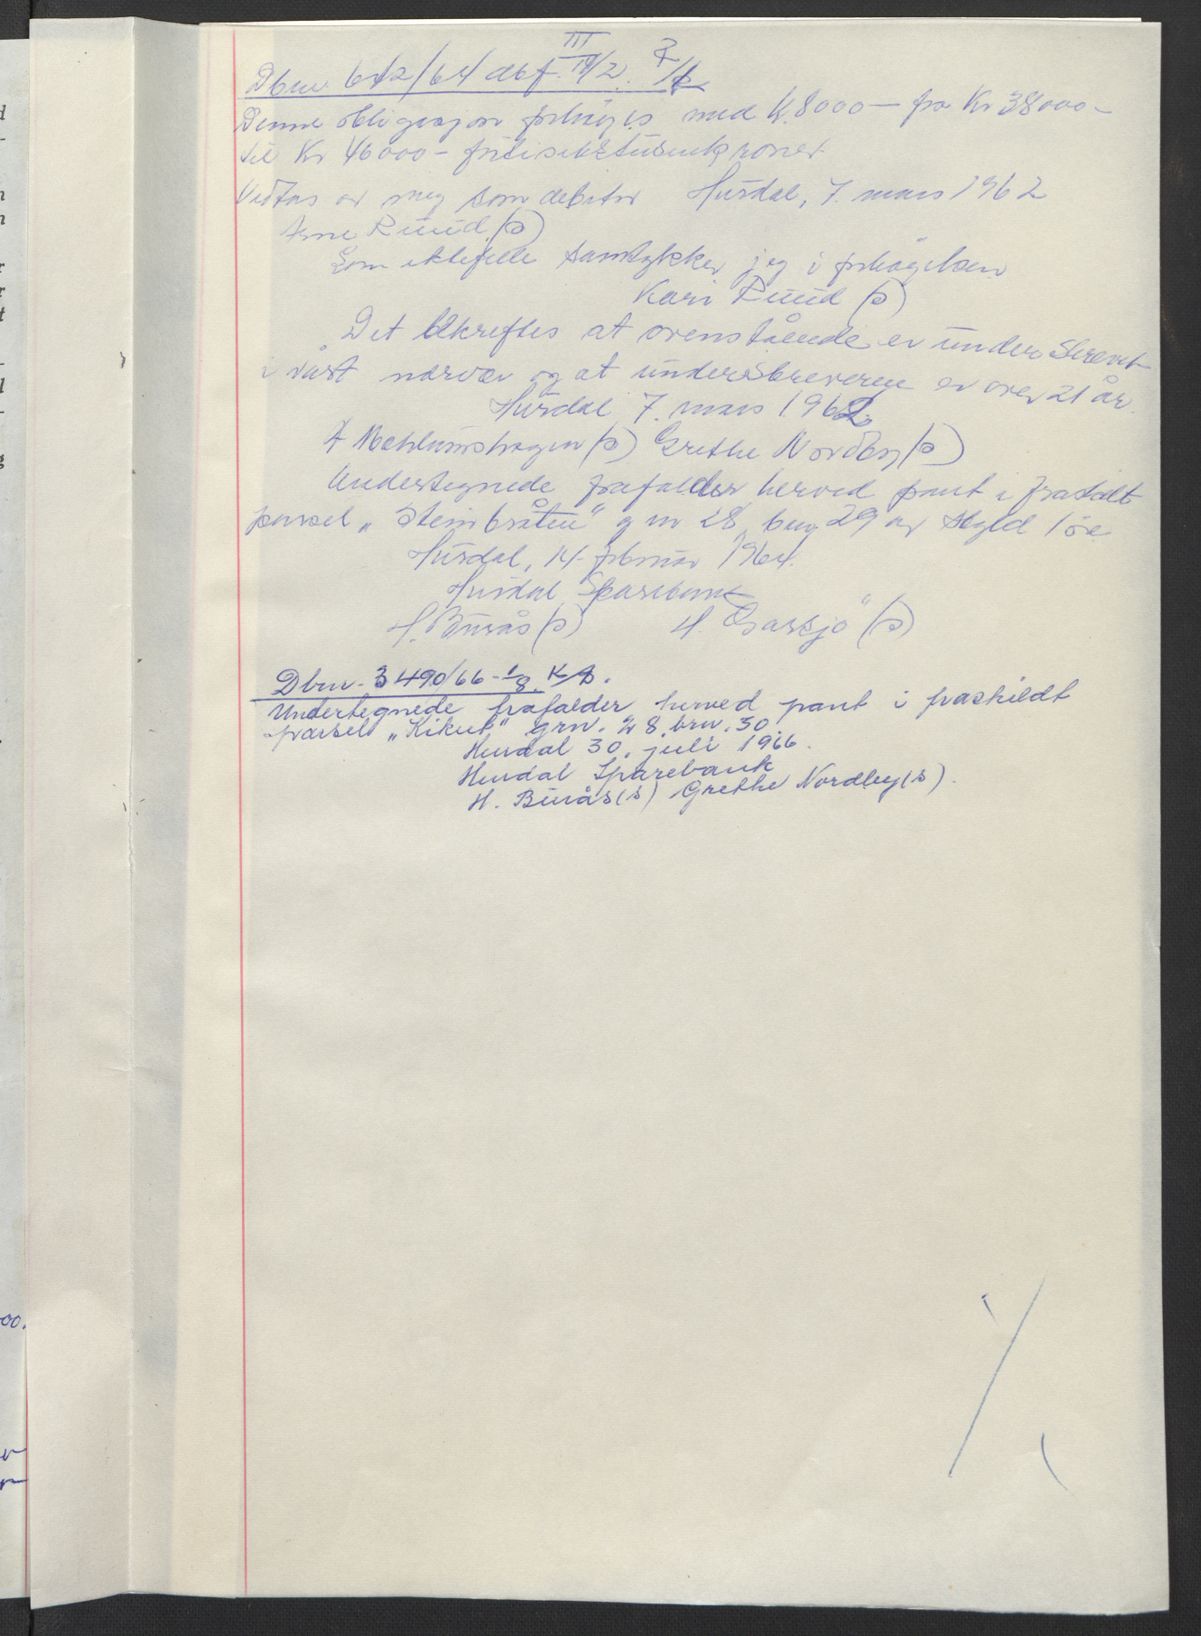 III
Dbnr. 612/64 dbf. 19/2.
Denne obligasjon forhøyes med kr. 8000– fra Kr 38000–
til Kr 46000– førtisekstusenkroner
Vedtas av meg som debitor Hurdal, 7. mars 1962
Arne Ruud (s)
Som ektefelle samtykker jeg i forhøyelsen
Kari Ruud (s)
Det bekreftes at ovenstående er underskrevet
i vårt nærvær og at underskriverne er over 21 år.
Hurdal 7. mars 1962.
A Mæhlumshagen (s) Grethe Nordby (s)
Undertegnede frafaller herved pant i fraskilt
parsel „Steinbråten" g nr 28, bnr 29 av skyld 1 øre
Hurdal, 14. februar 1964.
Hurdal Sparebank
H. Burås (s) H. Garsjö (s)
Dbnr. 3490/66 - 1/8.
Undertegnede frafalder herved pant i fraskildt
parsell „Kikut" grn. 28, brn. 30.
Hurdal 30. juli 1966.
Hurdal Sparebank
H. Burås (s) Grethe Nordby (s).
00.